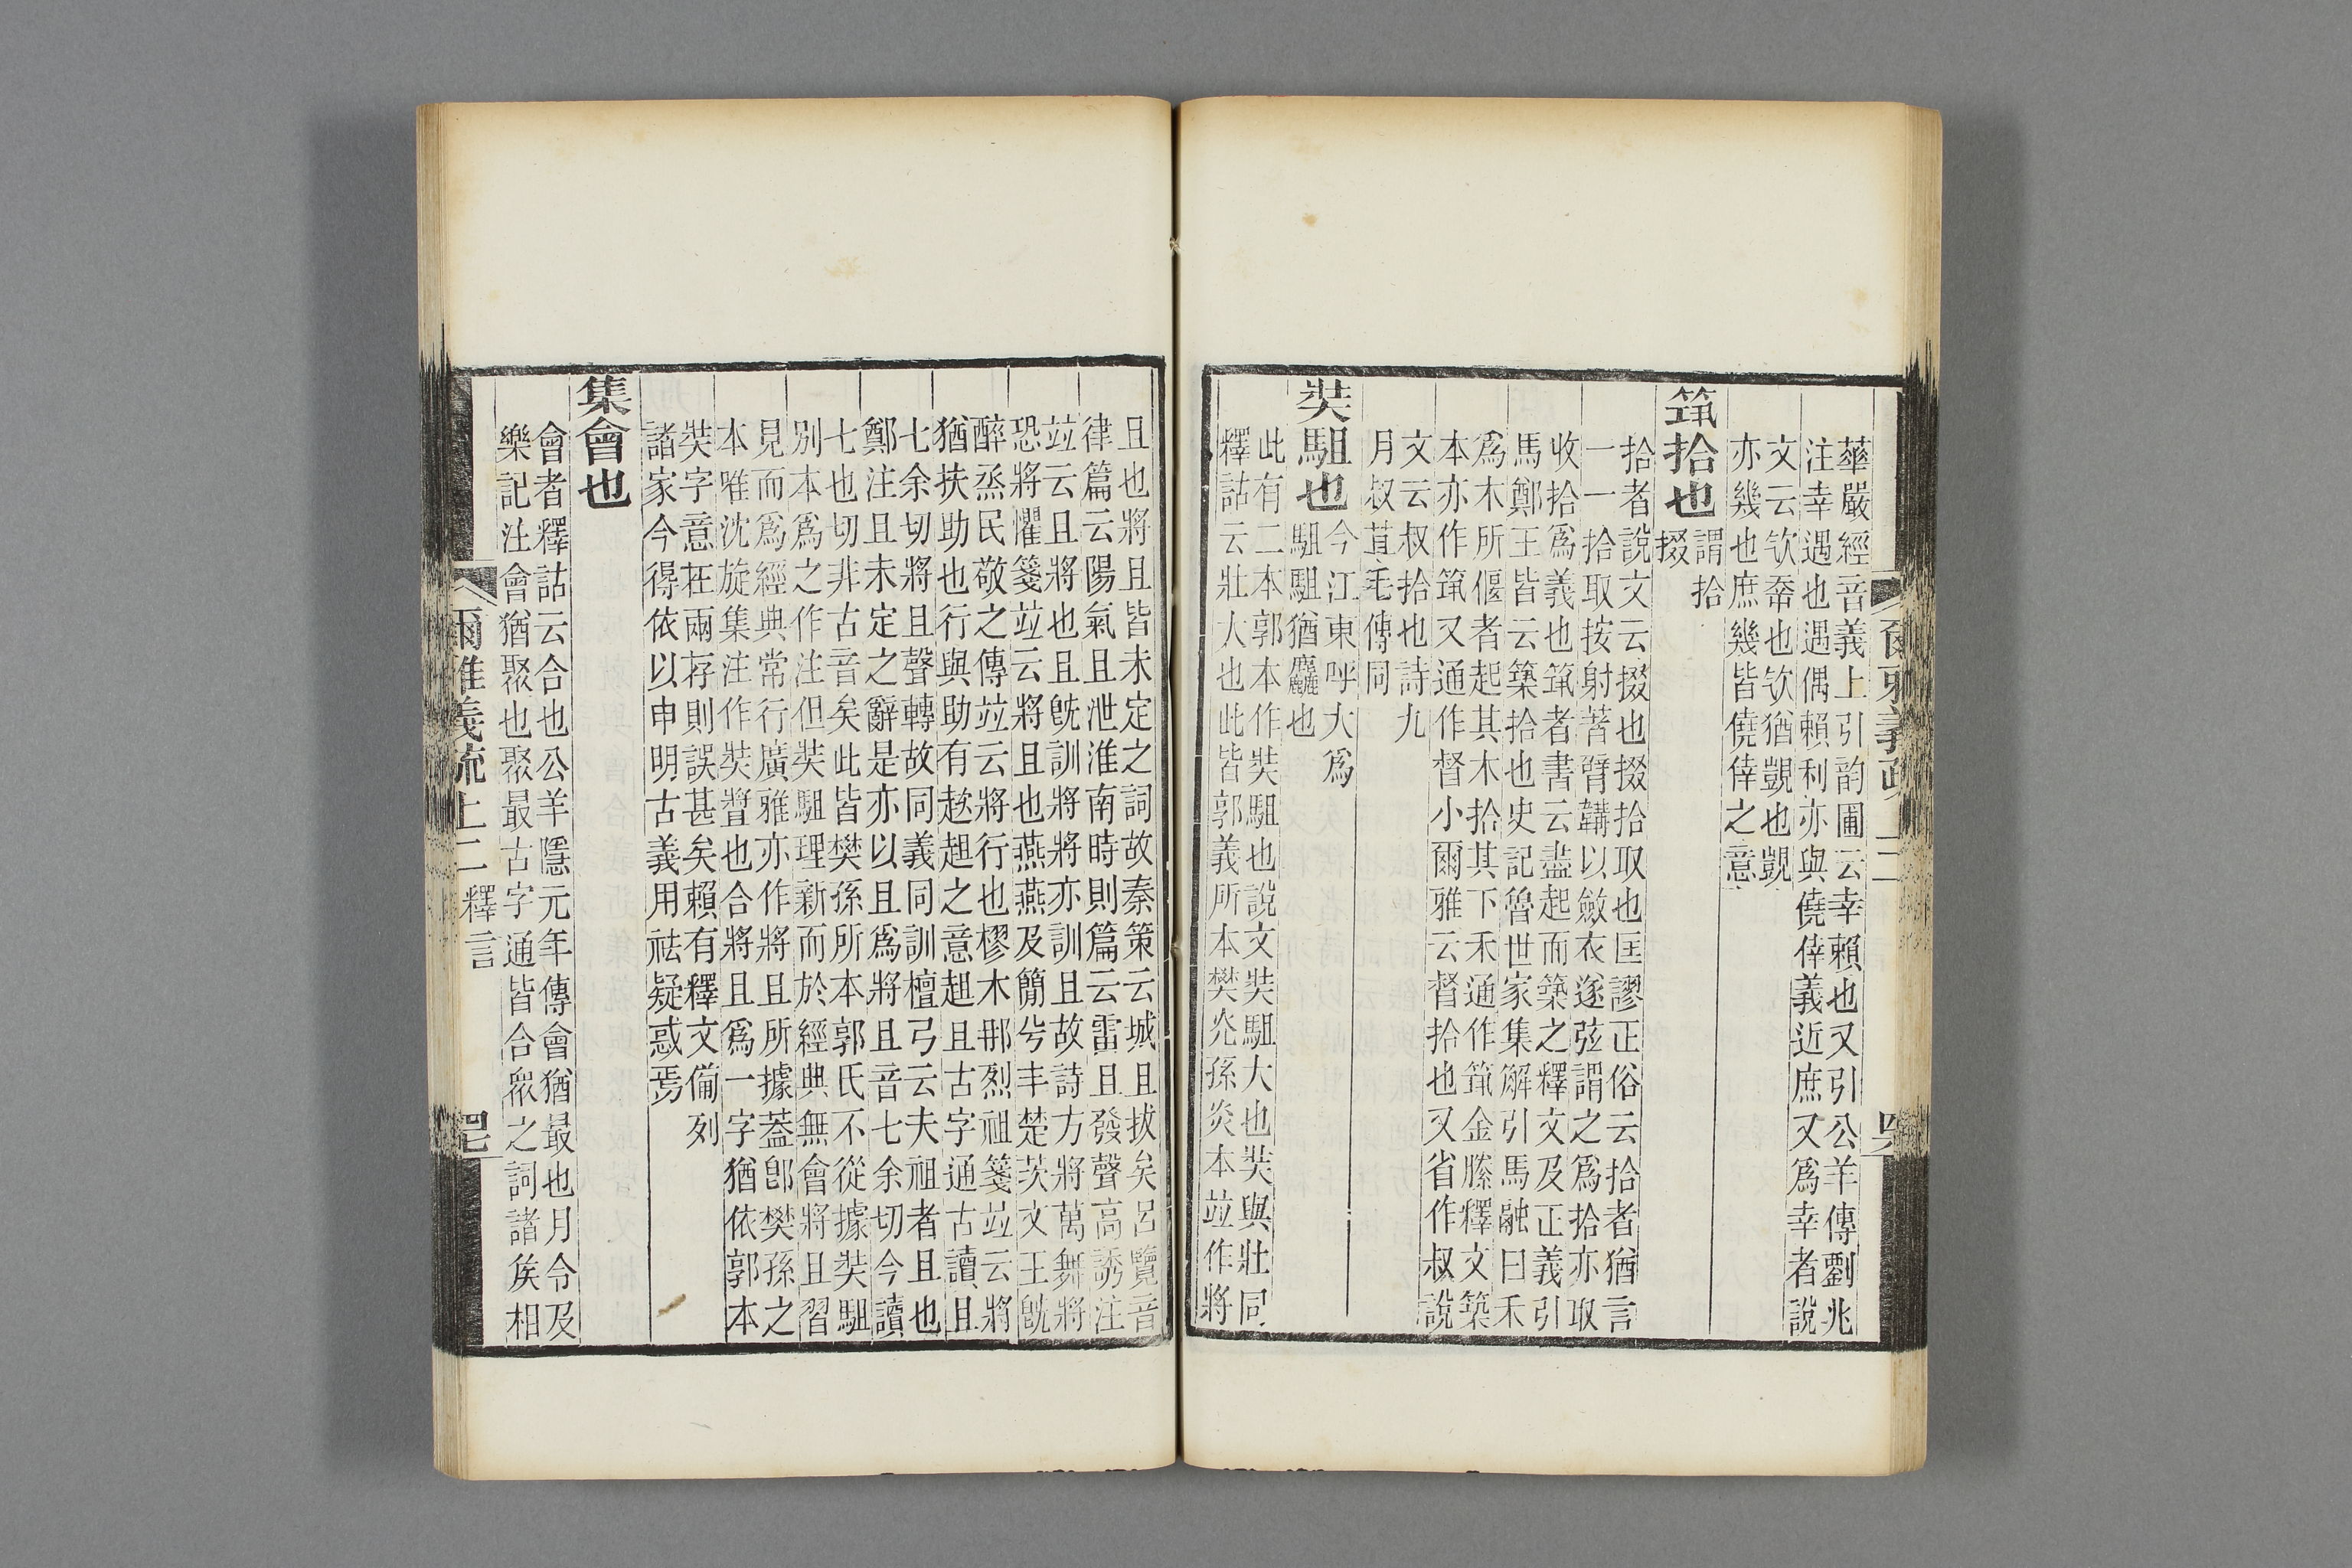 華嚴經音義上引韵圃云幸賴也又引公羊傳劉兆
注幸遇也遇偶賴利亦與僥倖義近庶又爲幸者說
文云欽㚜也欽猶覬也覬
亦幾也庶幾皆僥倖之意
筑拾也
謂拾
掇
拾者說文云掇也掇拾取也匡謬正俗云拾者猶言
一一拾取按射著臂韝以斂衣遂弦謂之爲拾亦取
收拾爲義也筑者書云盡起而築之釋文及正義引
馬鄭王皆云築拾也史記魯世家集解引馬融曰禾
爲木所偃者起其木拾其下禾通作筑金縢釋文築
本亦作筑又通作督小爾雅云督拾也又省作叔說
文云叔拾也詩九
月叔苴毛傳同
奘駔也
今江東呼大爲
駔駔猶麤也
此有二本郭本作奘駔也說文奘駔大也奘與壯同
釋詁云壯大也此皆郭義所本樊光孫炎本竝作將
且也將且皆未定之詞故秦策云城且拔矣呂覽音
律篇云陽氣且泄淮南時則篇云雷且發聲高誘注
竝云且將也且旣訓將將亦訓且故詩方將萬舞將
恐將懼箋竝云將且也燕燕及簡兮丰楚茨文王旣
醉烝民敬之傳竝云將行也樛木那烈祖箋竝云將
猶扶助也行與助有趑趄之意趄且古字通古讀且
七余切將且聲轉故同義同訓檀弓云夫祖者且也
鄭注且未定之辭是亦以且爲將且音七余切今讀
七也切非古音矣此皆樊孫所本郭氏不從據奘駔
別本爲之作注但奘駔理新而於經典無會將且習
見而爲經典常行廣雅亦作將且所據蓋卽樊孫之
本唯沈旋集注作奘暜也合將且爲一字猶依郭本
奘字意在兩存則誤甚矣賴有釋文備列
諸家今得依以申明古義用祛疑惑焉
集會也
會者釋詁云合也公羊隱元年傳會猶最也月令及
樂記注會猶聚也聚最古字通皆合衆之詞諸矦相
爾雅義疏上二 釋言